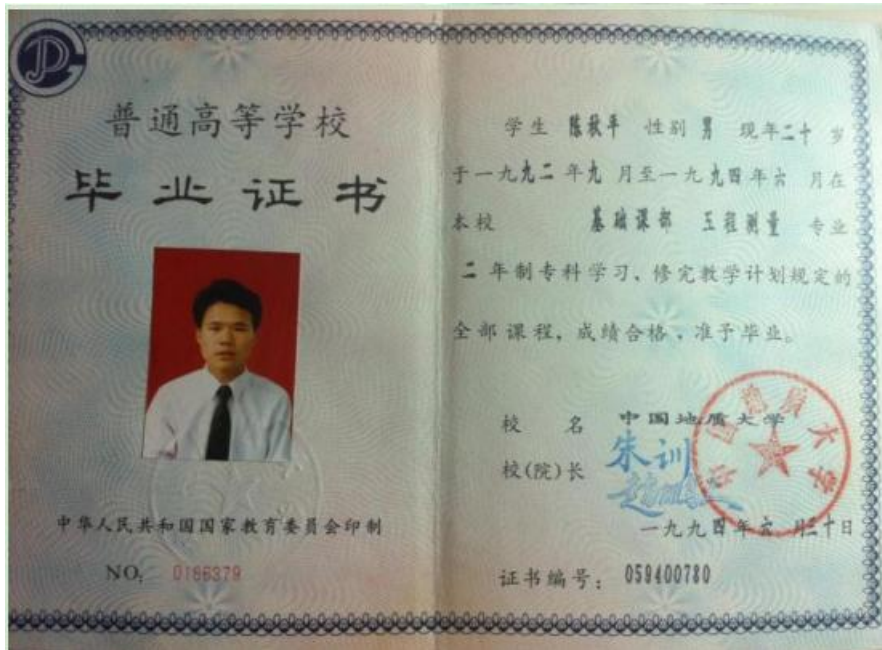 普通高等学校
毕业证书
中华人民共和国国家教育委员会印制
NO: 0186379
学生 陈秋平 性别 男 现年二十 岁
于一九九二年九 月至一九九四年六 月在
本校 基础课部 工程测量 专业
二 年制专科学习、修完教学计划规定的
全部课程，成绩合格，准予毕业。
校 名 中国地质大学
校(院)长 朱训
赵鹏大
中国地质大学
一九九四年六 月三十日
证书编号： 059400780